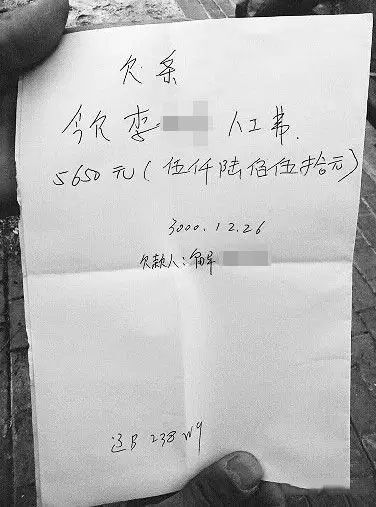 欠条
今欠李 人工费.
5650元(伍仟陆佰伍拾元)
3000.12.26
欠款人:
辽B 238W9